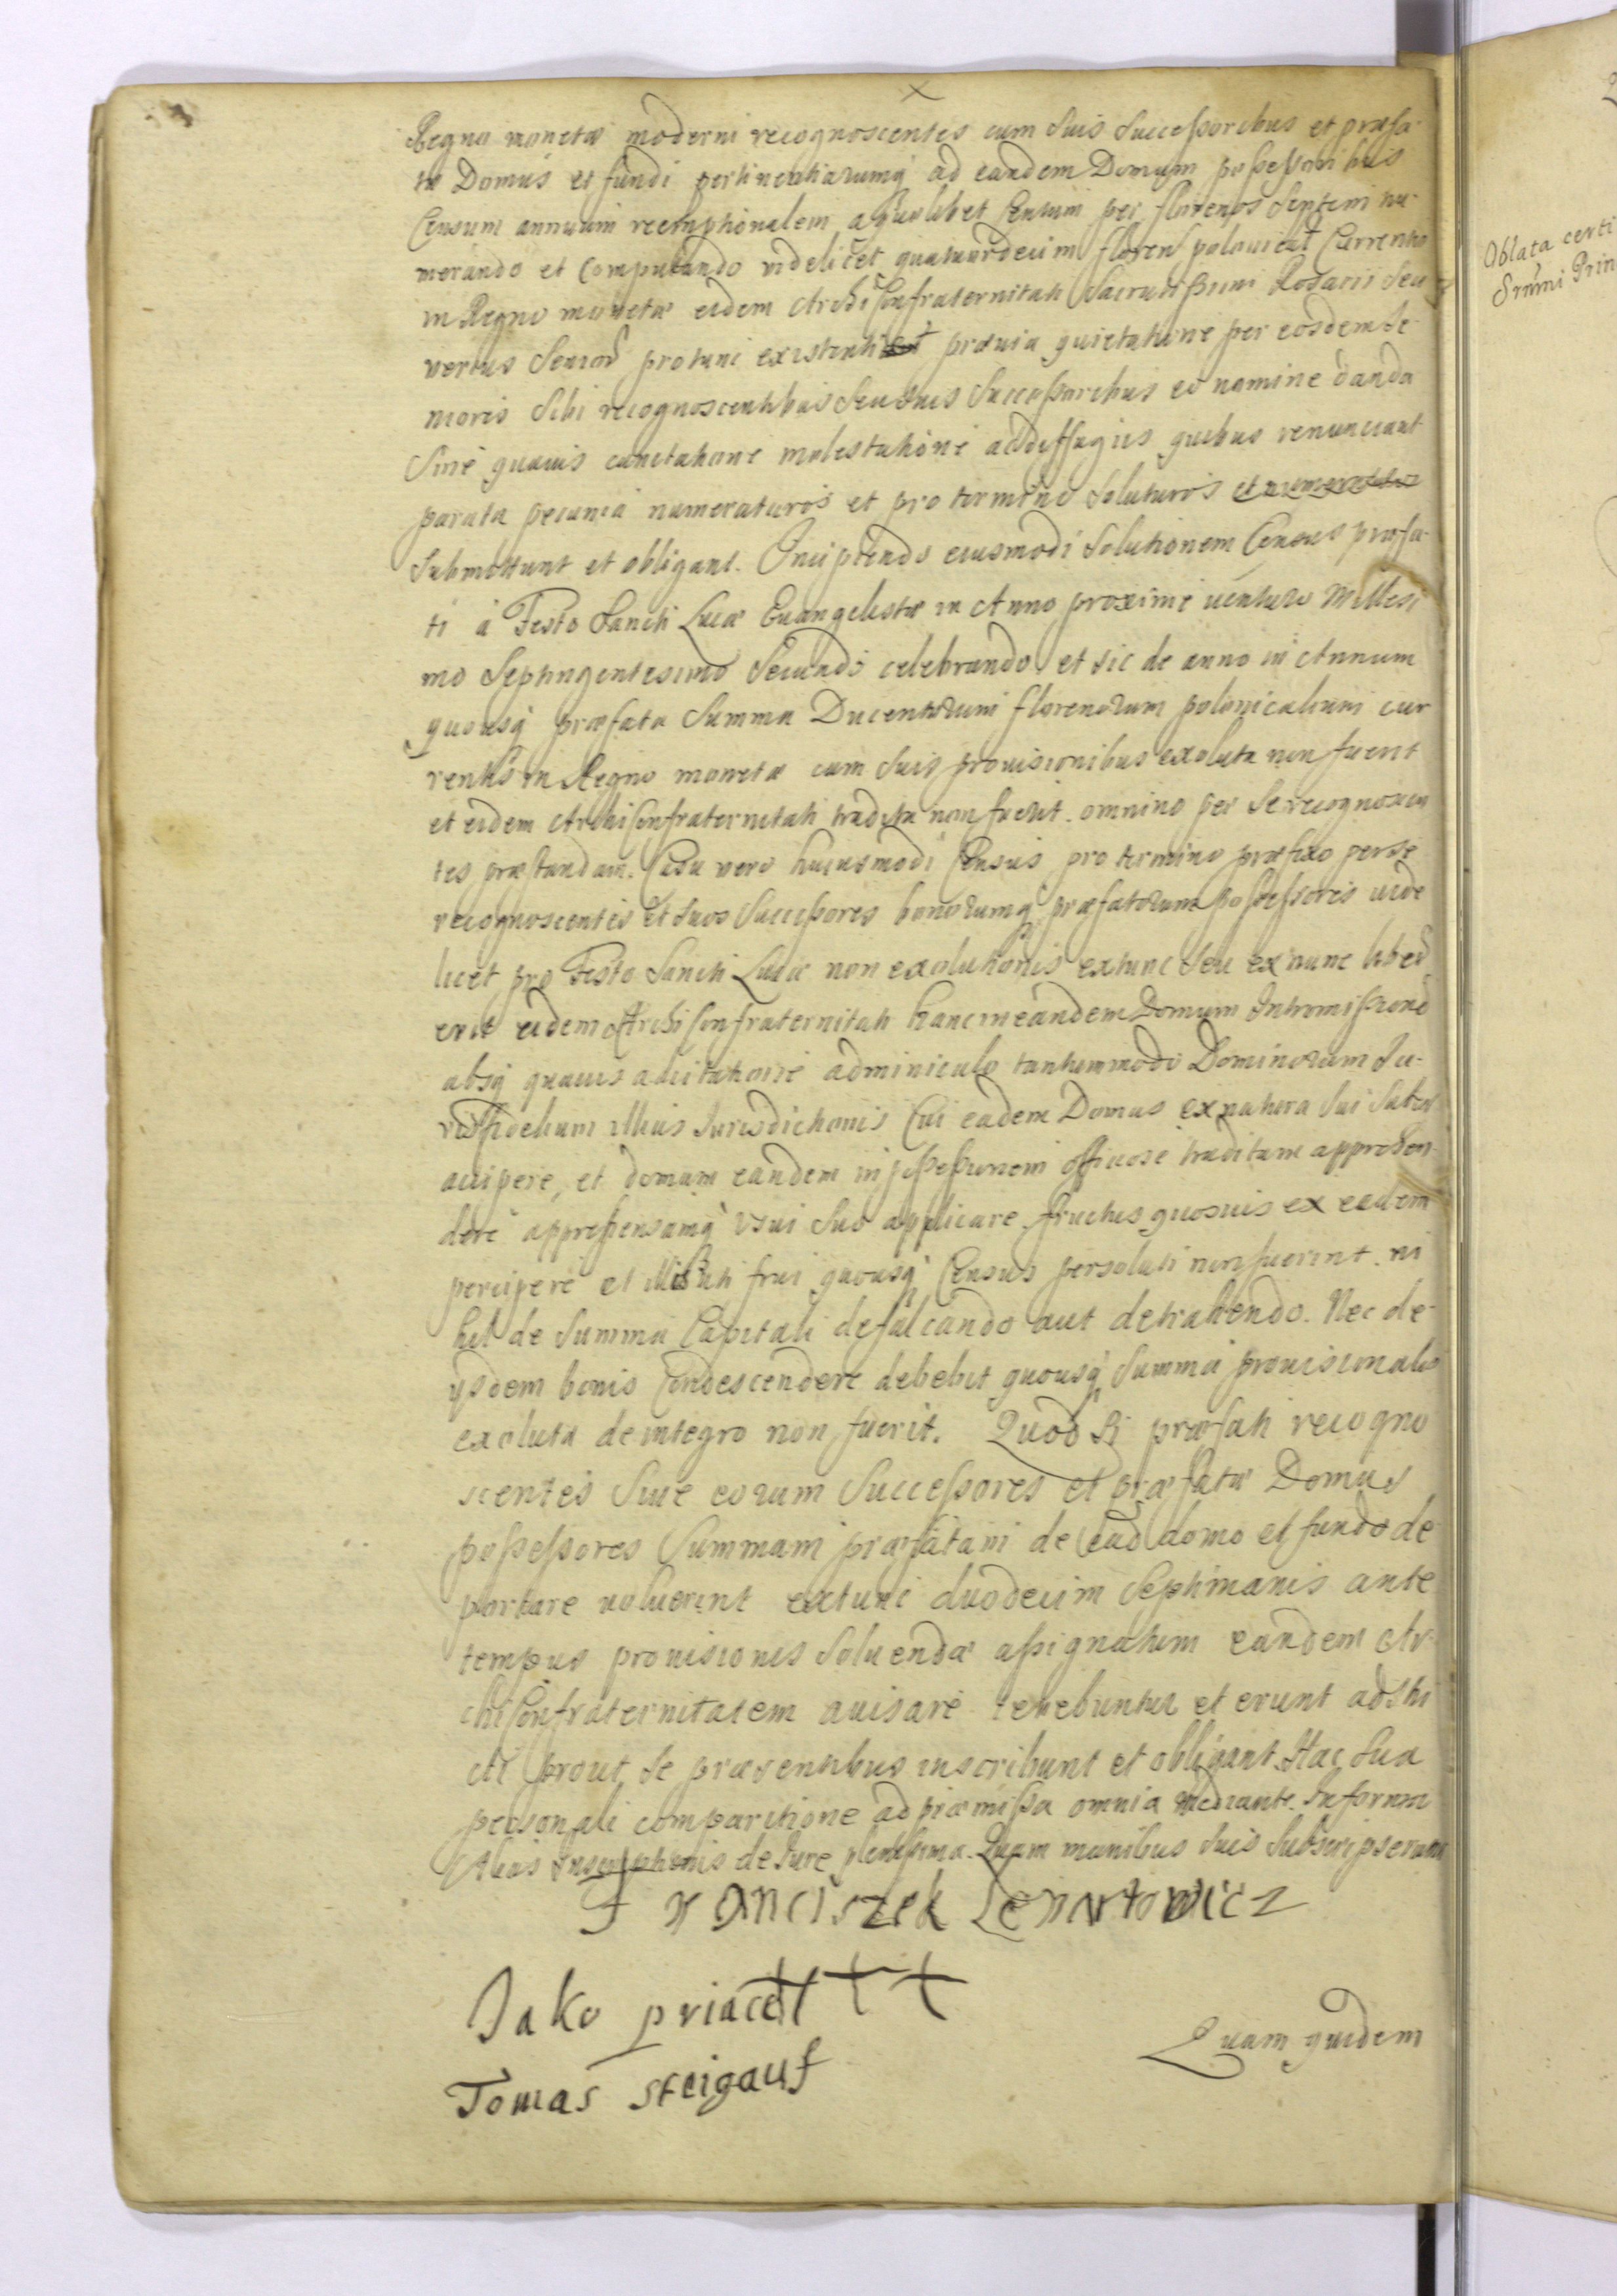 Regno monetæ moderni recognoscentes cum suis successoribus et præfa-
tæ Domus et fundi pertinentiarumq̀ ad eandem Domum possessoribus
Censum annuum reemptionalem a quolibet Centum per florenos septem nu-
merando et computando videlicet quatuordecim floren polonical Currentis
in Regno monetæ eidem Archiconfraternitati Sacratissimi Rosarii seu
verius Senior pro tunc existenti prævia quietatione per eosdem Se-
niores sibi recognoscentibus seu suis successoribus eo nomine danda
Sine quavis cunctatione molestatione ac diffugiis quibus renunciant
parata pecunia numeraturos et pro termino soluturos
submittunt et obligant. Incipiendo eiusmodi solutionem Census præfa-
ti á Festo Sancti Lucæ Evangelistæ in Anno proxime venturo Millesi
mo Septingentesimo Secundo celebrando et sic de anno in Annum
quousq̀ præfata Summa Ducentorum florenorum polonicalium cur
rentis in Regno monetæ cum suis provisionibus exoluta non fuerit
et eidem Archiconfraternitati tradita non fuerit. omnino per se recognoscen
tes præstandam. Casu vero huiusmodi Census pro termino præfixo per se
recognoscentes et suos successores bonorumq̀ præfatorum possessores vide
licet pro Festo Sancti Lucæ non exolutionis extunc seu ex nunc liber
erit eidem Archiconfraternitati hanc in eandem Domum Intromissione
absq̀ quavis adcitatione adminiculo tantummodo Dominorum Ju-
risfidelium illius Jurisdictionis Cui eadem Domus ex natura sui
accipere, et domum eandem in possessionem officiose traditam apprehen-
dere apprehensamq̀ usui suo applicare fructus quosvis ex eadem
percipere et illis uti frui quousq̀ Census persoluti non fuerint. ni
hil de Summa Capitali defalcando aut detrahendo. Nec de
ijsdem bonis Condescendere debebit quousq̀ Summa provisionalis
exoluta de integro non fuerit. Quod si præfati recogno
scentes sive eorum successores et præfatæ Domus
possessores Summam præfatam de ead domo et fundo de
portare voluerint extunc duodecim septimanis ante
tempus provisionis solvendæ assignatum eandem Ar-
chiConfraternitatem avisare tenebuntur et erunt adstri
cti prout se præsentibus inscribunt et obligant. Hac sua
personali comparitione ad præmissa omnia mediante. In forma
Alias Inscriptionis de Jure plenissima. Quam manibus suis subscripserunt
Franciszek Lenartowicz
Jako priacel +++
Tomas steigauf
Quam quidem
Oblata certi
Srmi Prin